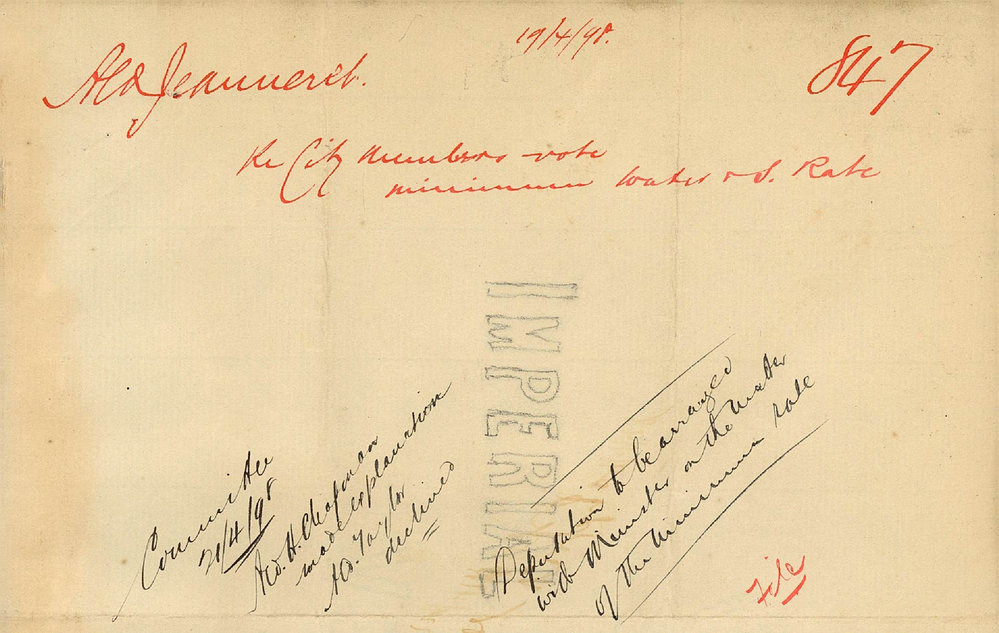 19/4/98.
Ald Jeanneret.
847
Re City Members vote
minimum Water & S. Rate
IMPERIAL
Committee
21/4/98
Ald. H. Chapman
made explanation
Ald. Taylor
declined
Deputation to be arranged
with Minister on the matter
of the minimum rate
File